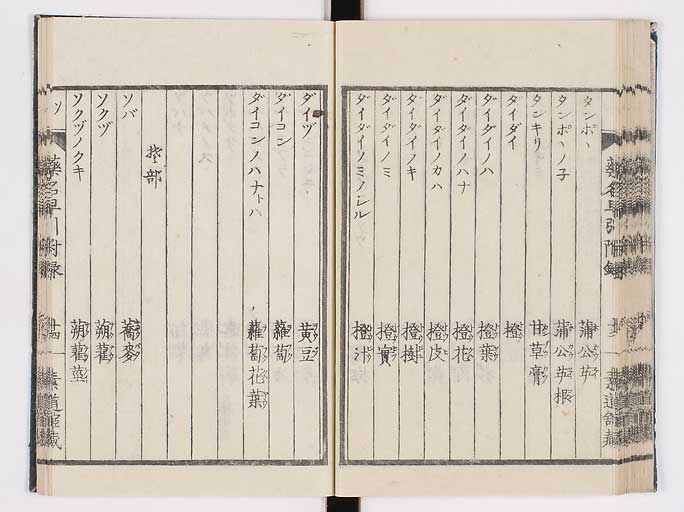 タンポヽ 蒲公英
タンポヽノ子 蒲公英根
タンキリ 甘草膏
ダイダイ 橙
ダイダイノハ 橙葉
ダイダイノハナ 橙花
ダイダイノカハ 橙皮
ダイダイノキ 橙樹
ダイダイノミ 橙實
ダイダイノミノシル 橙汁
ダイヅ 黄豆
ダイコン 蘿蔔
ダイコンノハナトハ 蘿蔔花葉
部
ソバ 蕎麥
ソクヅ 蒴藋
ソクヅノクキ 蒴藋莖
ソ 藥名早引附録 廿四